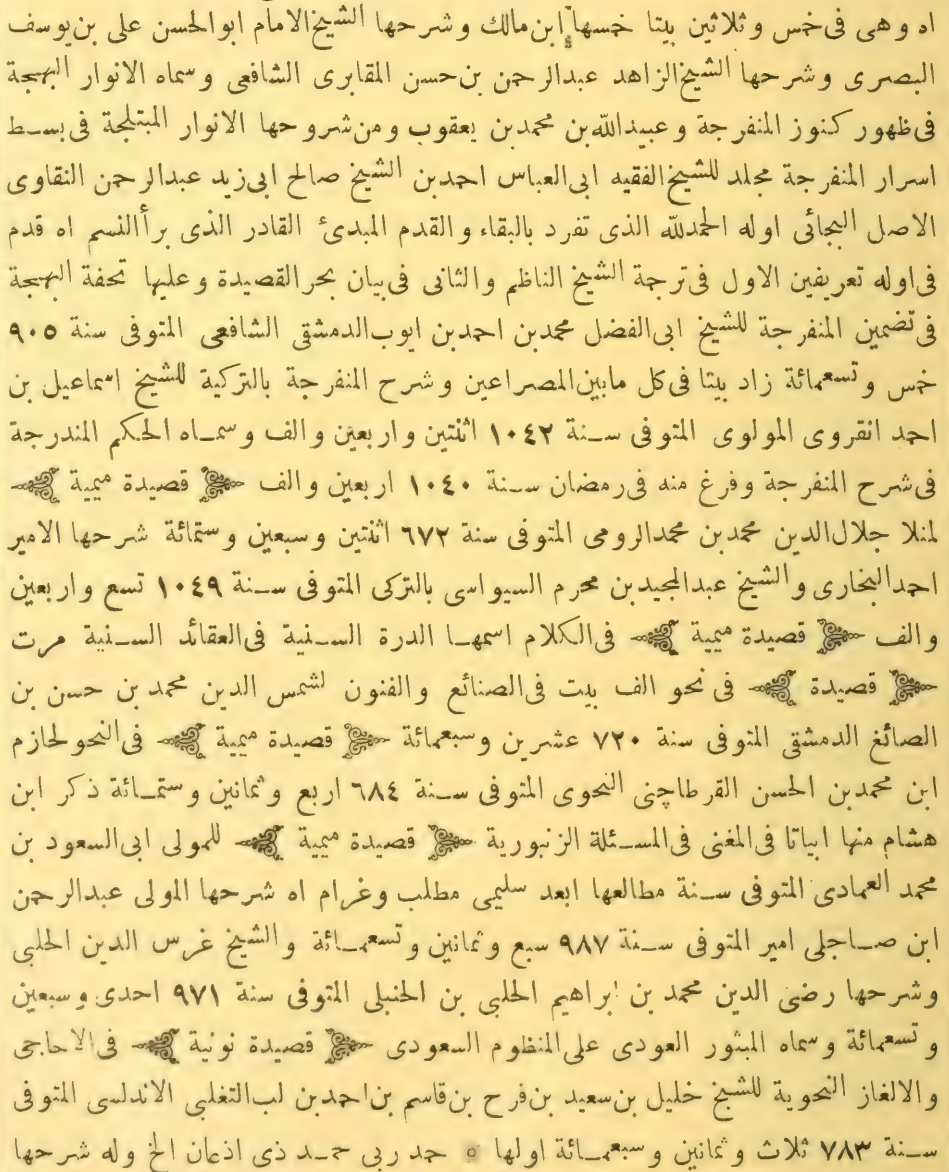 اه وهى فى خمس وثلاثين بيتا خمسها ابن مالك وشرحها الشيخ الامام ابوالحسن على بن يوسف
البصرى وشرحها الشيخ الزاهد عبدالرحمن بن حسن المقابرى الشافعى وسماه الانوار البهجة
فى ظهور كنوز المنفرجة وعبيدالله بن محمد بن يعقوب ومن شروحها الانوار المبتلجة فى بسط
اسرار المنفرجة مجلد للشيخ الفقيه ابى العباس احمد بن الشيخ صالح ابى زيد عبدالرحمن النقاوى
الاصل البجائى اوله الحمدلله الذى تفرد بالبقاء والقدم المبدئ القادر الذى برأ النسم اه قدم
فى اوله تعريفين الاول فى ترجمة الشيخ الناظم والثانى فى بيان بحر القصيدة وعليها تحفة البهجة
فى تضمين المنفرجة للشيخ ابى الفضل محمد بن احمد بن ايوب الدمشقى الشافعى المتوفى سنة ٩٠٥
خمس وتسعمائة زاد بيتا فى كل مابين المصراعين وشرح المنفرجة بالتركية للشيخ اسماعيل بن
احمد انقروى المولوى المتوفى سنة ١٠٤٢ اثنتين واربعين والف وسماه الحكم المندرجة
فى شرح المنفرجة وفرغ منه فى رمضان سنة ١٠٤٠ اربعين والف ﴿ قصيدة ميمية ﴾
لمنلا جلال الدين محمد بن محمد الرومى المتوفى سنة ٦٧٢ اثنتين وسبعين وستمائة شرحها الامير
احمد البخارى والشيخ عبدالمجيد بن محرم السيواسى بالتركى المتوفى سنة ١٠٤٩ تسع واربعين
والف ﴿ قصيدة ميمية ﴾ فى الكلام اسمها الدرة السنية فى العقائد السنية مرت
﴿ قصيدة ﴾ فى نحو الف بيت فى الصنائع والفنون لشمس الدين محمد بن حسن بن
الصائغ الدمشقى المتوفى سنة ٧٢٠ عشرين وسبعمائة ﴿ قصيدة ميمية ﴾ فى النحو لحازم
ابن محمد بن الحسن القرطاجنى النحوى المتوفى سنة ٦٨٤ اربع وثمانين وستمائة ذكر ابن
هشام منها ابياتا فى المغنى فى المسئلة الزنبورية ﴿ قصيدة ميمية ﴾ للمولى ابى السعود بن
محمد العمادى المتوفى سنة مطالعها ابعد سليمى مطلب وغرام اه شرحها المولى عبدالرحمن
ابن صاجلى امير المتوفى سنة ٩٨٧ سبع وثمانين وتسعمائة والشيخ غرس الدين الحلبى
وشرحها رضى الدين محمد بن ابراهيم الحلبى بن الحنبلى المتوفى سنة ٩٧١ احدى وسبعين
وتسعمائة وسماه المنثور العودى على المنظوم السعودى ﴿ قصيدة نونية ﴾ فى الاحاجى
والالغاز النحوية للشيخ خليل بن سعيد بن فرح بن قاسم بن احمد بن لب التغلبى الاندلسى المتوفى
سنة ٧٨٣ ثلاث وثمانين وسبعمائة اولها ٥ حمد ربى حمد ذى اذعان الخ وله شرحها